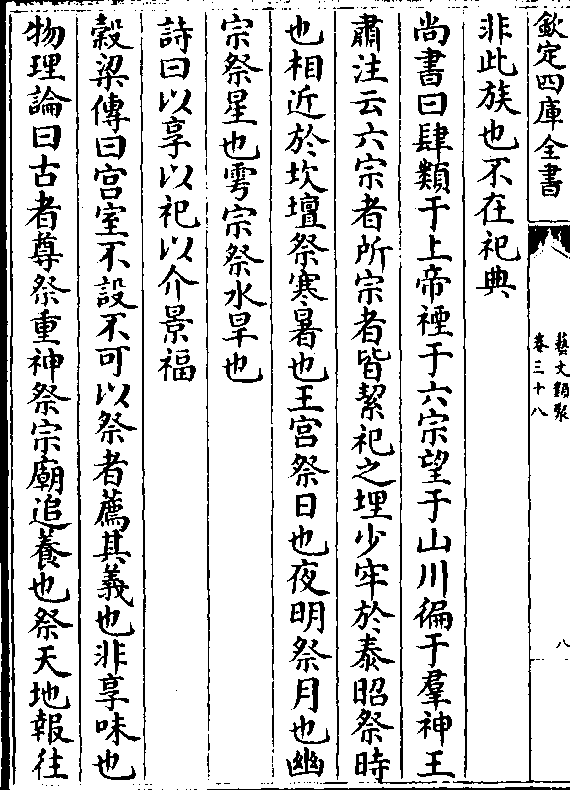 欽定四庫全書
藝文類聚
卷三十八
八
非此族也不在祀典
尚書曰肆類于上帝禋于六宗望于山川徧于羣神王
肅注云六宗者所宗者皆絜祀之埋少牢於泰昭祭時
也相近於坎壇祭寒暑也王宫祭日也夜明祭月也幽
宗祭星也雩宗祭水旱也
詩曰以享以祀以介景福
穀梁傳曰宫室不設不可以祭者薦其義也非享味也
物理論曰古者尊祭重神祭宗廟追養也祭天地報往